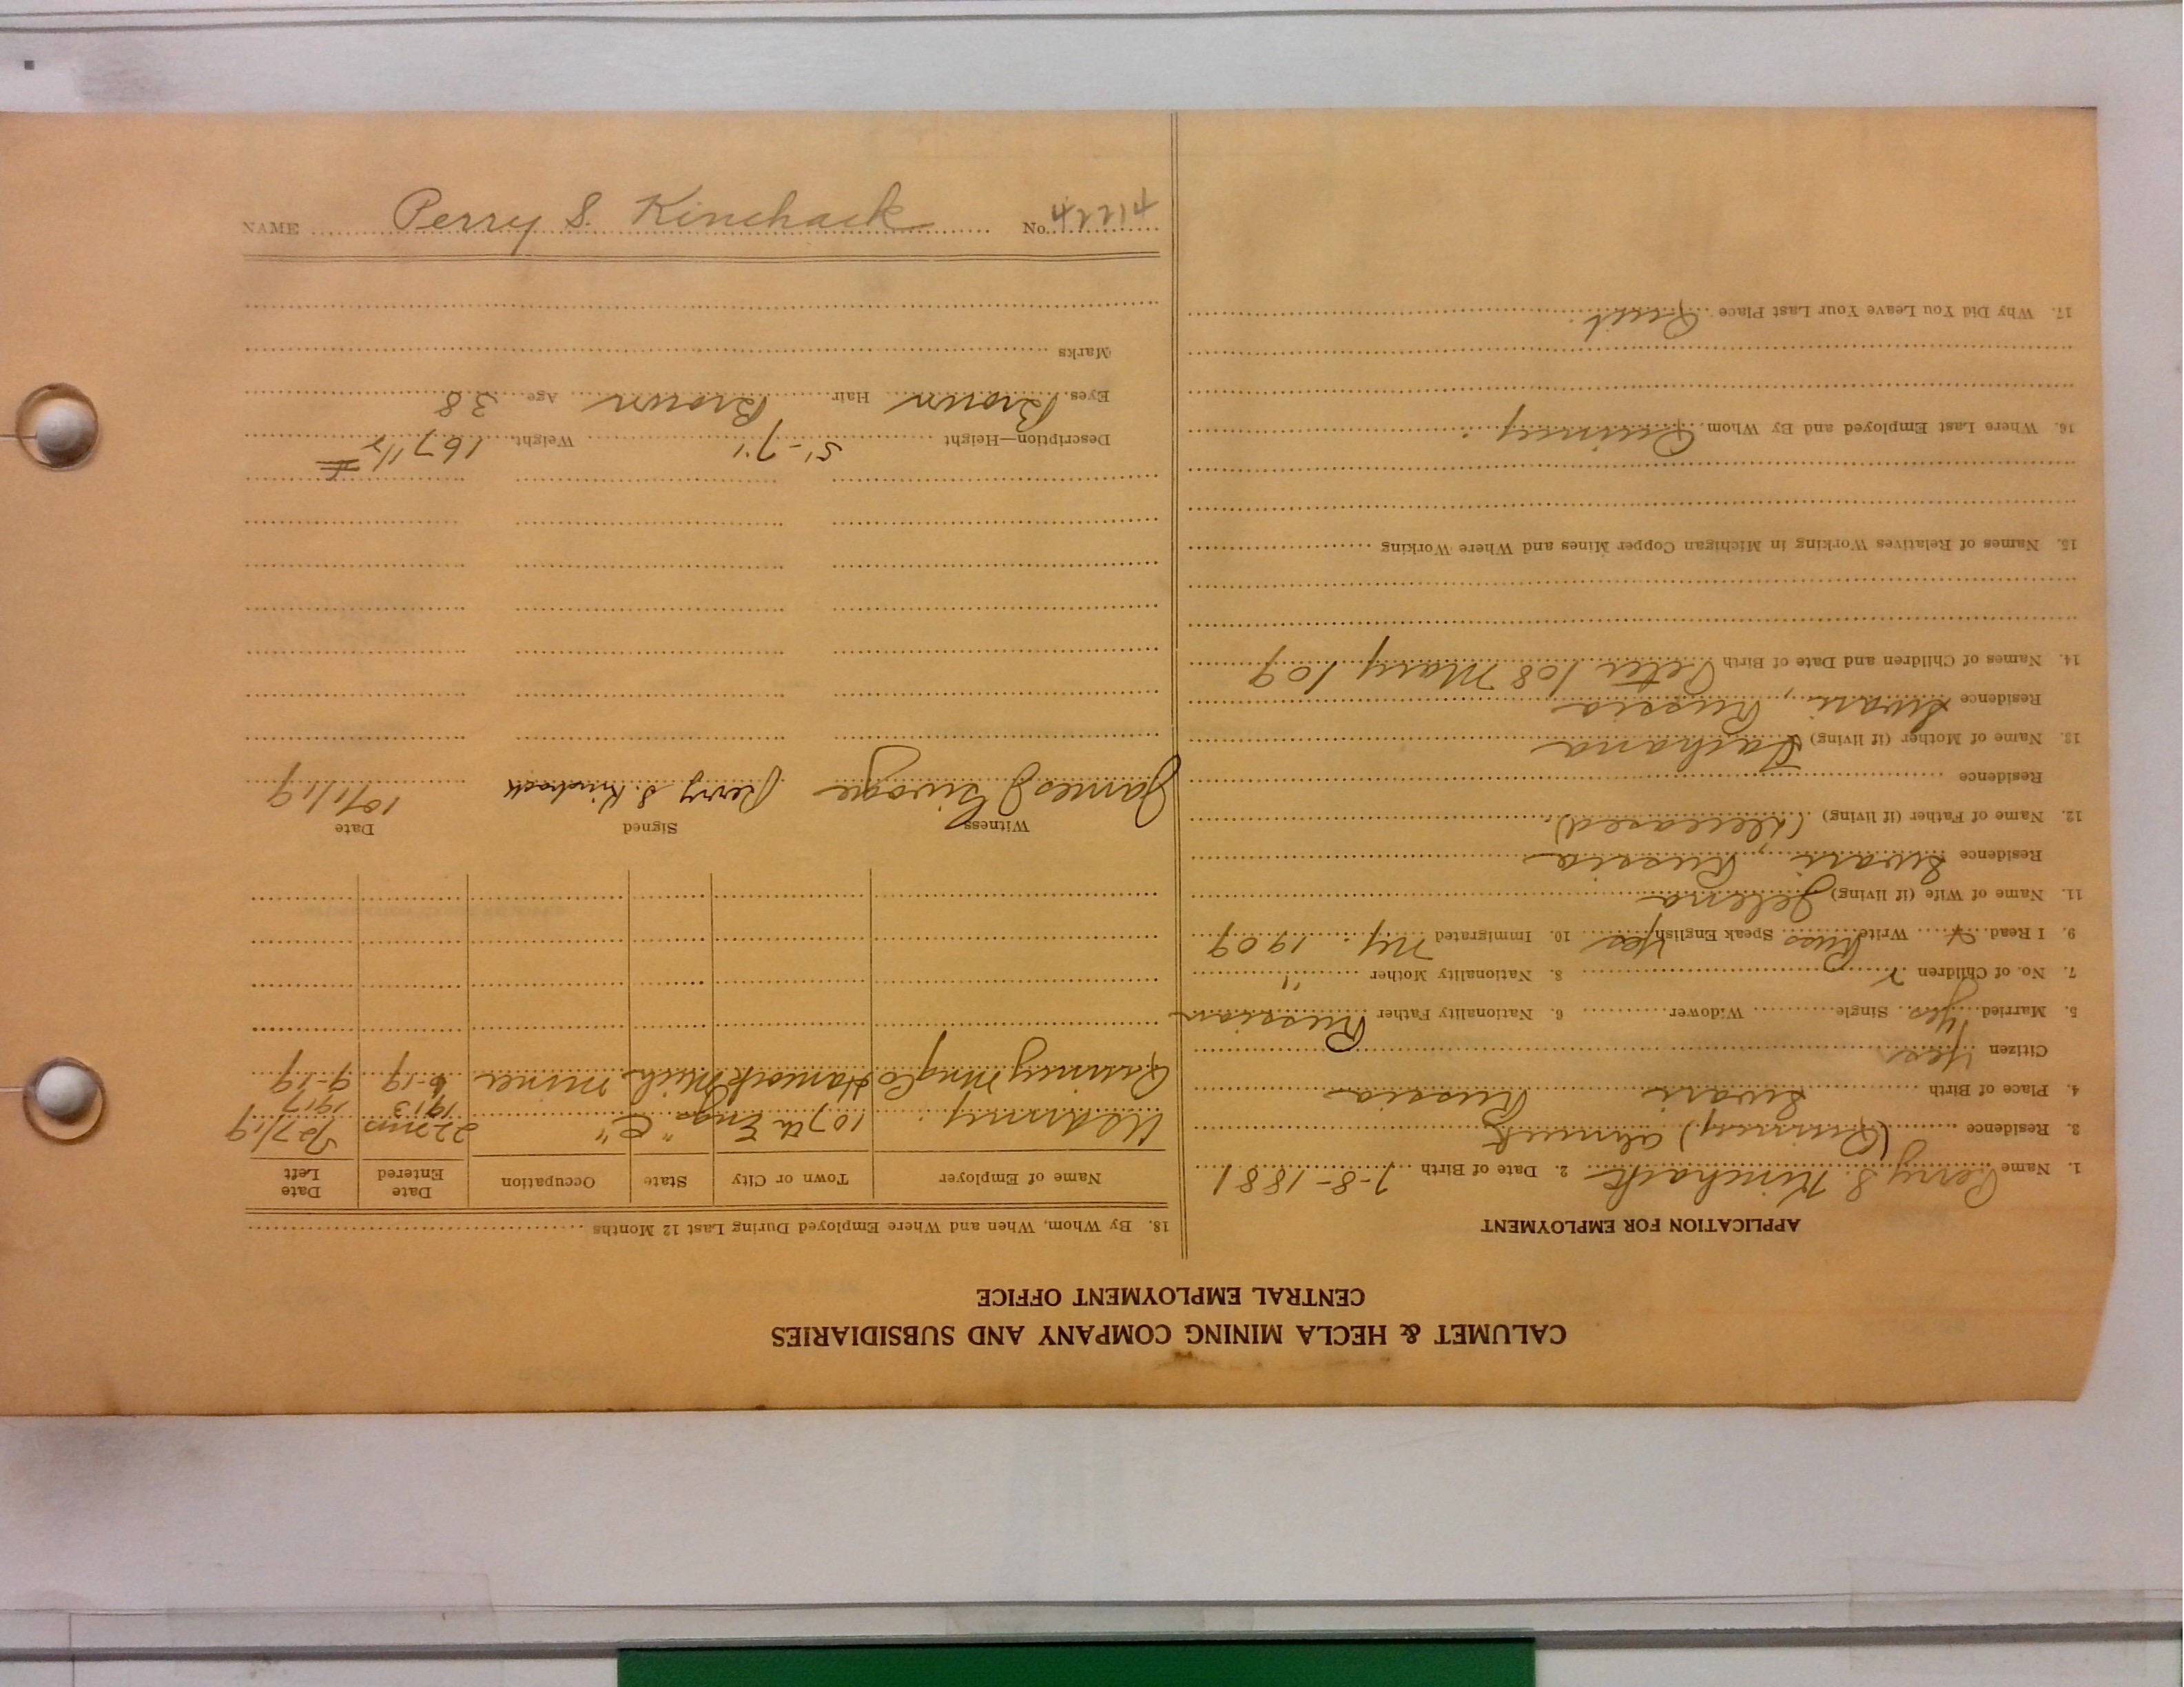 CALUMET & HECLA MINING COMPANY AND SUBSIDIARIES
CENTRAL EMPLOYMENT OFFICE
APPLICATION FOR EMPLOYMENT
1. Name Perry S. Kinchack 2. Date of Birth 7-8-1881
3. Residence (Quincy)
4. Place of Birth Russia
Citizen Yes
5. Married Yes Single Widower 6. Nationality Father Russian
7. No. of Children 2 8. Nationality Mother "
9. I Read Write Russ Speak English Yes 10. Immigrated NY. 1909
11. Name of Wife (if living) Jelena
Residence Russia
12. Name of Father (if living) (Deceased)
Residence
13. Name of Mother (if living)
Residence Russia
14. Names of Children and Date of Birth Peter 108 Mary 109
15. Names of Relatives Working in Michigan Copper Mines and Where Working
16. Where Last Employed and By Whom Quincy.
17. Why Did You Leave Your Last Place Quit.
18. By Whom, When and Where Employed During Last 12 Months
Name of Employer Town or City State Occupation Date Entered Date Left
US Army. 107th Engs "C" 1913 1917
Quincy Mng Co Hancock Mich. Miner 6-19 9-19
Witness Signed Date
James J Perry S. Kinchack 10/1/19
Description—Height 5'-7" Weight 167 1/2 #
Eyes Brown Hair Brown Age 38
Marks
NAME Perry S. Kinchack No. 42214